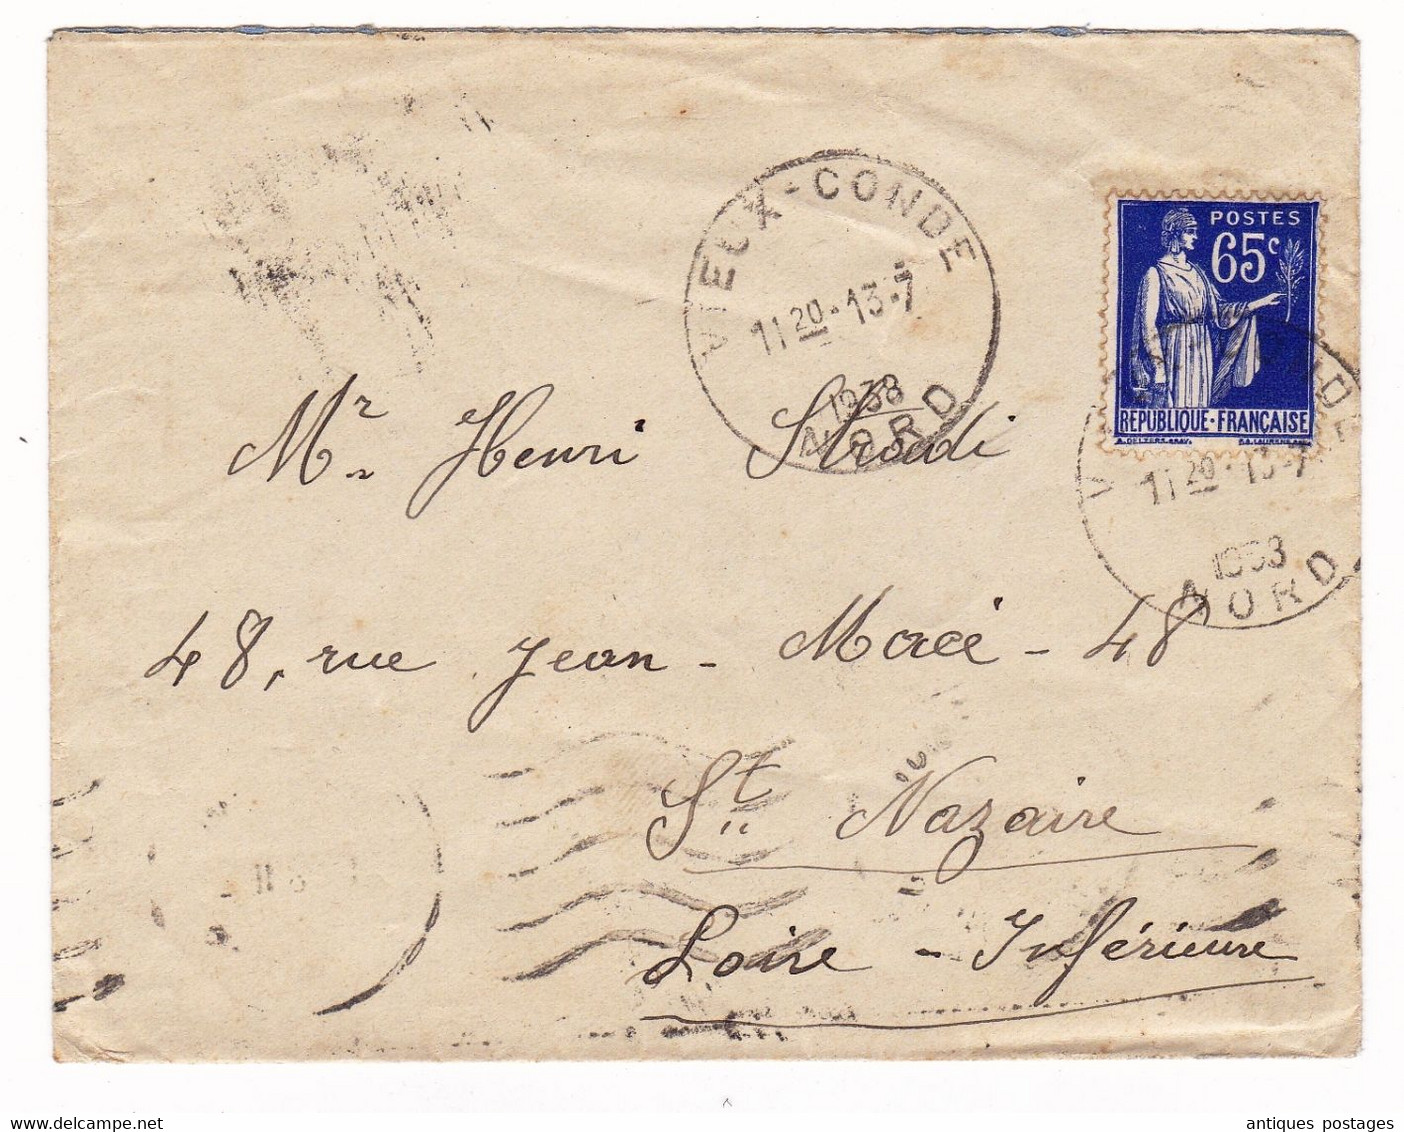 VIEUX-CONDE
11 20 - 13-7
1938
NORD
POSTES
65c
REPUBLIQUE-FRANÇAISE
11 20 - 13-7
NORD
Mr Henri
48, rue Jean - Macé - 48
St Nazaire
Loire - Inférieure
www.delcampe.net
antiques postages